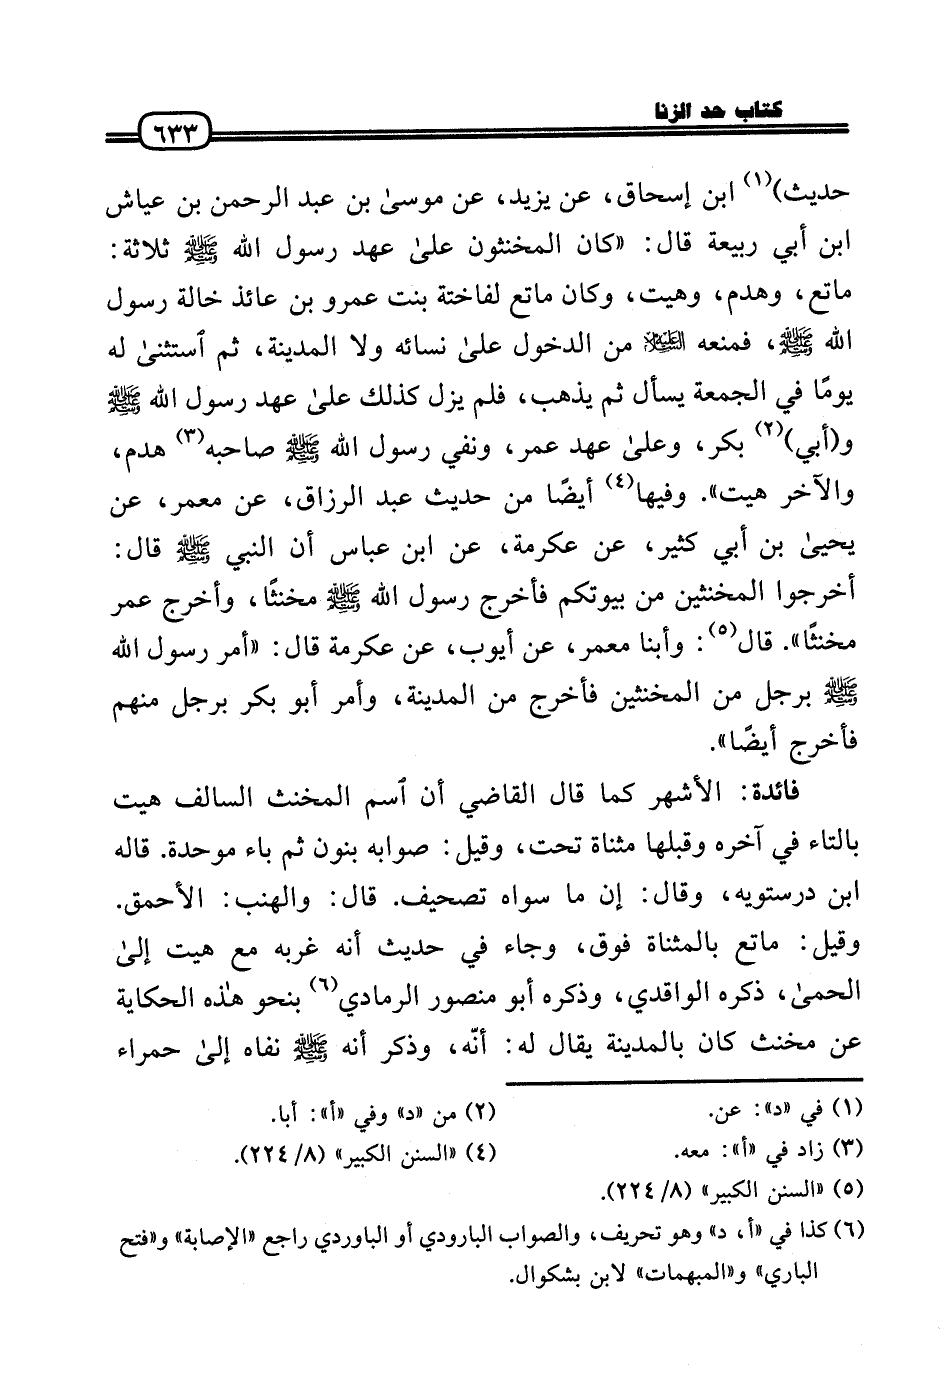 كتاب حد الزنا
٦٣٣
حديث)(١) ابن إسحاق، عن يزيد، عن موسىٰ بن عبد الرحمن بن عياش
ابن أبي ربيعة قال: «كان المخنثون علىٰ عهد رسول الله ﷺ ثلاثة:
ماتع، وهدم، وهيت، وكان ماتع لفاختة بنت عمرو بن عائذ خالة رسول
الله ﷺ، فمنعه العليه السلام من الدخول علىٰ نسائه ولا المدينة، ثم ٱستثنىٰ له
يومًا في الجمعة يسأل ثم يذهب، فلم يزل كذلك علىٰ عهد رسول الله ﷺ
و(أبي)(٢) بكر، وعلىٰ عهد عمر، ونفي رسول الله ﷺ صاحبه(٣) هدم،
والآخر هيت». وفيها(٤) أيضًا من حديث عبد الرزاق، عن معمر، عن
يحيىٰ بن أبي كثير، عن عكرمة، عن ابن عباس أن النبي ﷺ قال:
أخرجوا المخنثين من بيوتكم فأخرج رسول الله ﷺ مخنثًا، وأخرج عمر
مخنثًا». قال(٥): وأبنا معمر، عن أيوب، عن عكرمة قال: «أمر رسول الله
ﷺ برجل من المخنثين فأخرج من المدينة، وأمر أبو بكر برجل منهم
فأخرج أيضًا».
فائدة: الأشهر كما قال القاضي أن ٱسم المخنث السالف هيت
بالتاء في آخره وقبلها مثناة تحت، وقيل: صوابه بنون ثم باء موحدة. قاله
ابن درستويه، وقال: إن ما سواه تصحيف. قال: والهنب: الأحمق.
وقيل: ماتع بالمثناة فوق، وجاء في حديث أنه غربه مع هيت إلىٰ
الحمىٰ، ذكره الواقدي، وذكره أبو منصور الرمادي(٦) بنحو هٰذه الحكاية
عن مخنث كان بالمدينة يقال له: أنّه، وذكر أنه ﷺ نفاه إلىٰ حمراء
(١) في «د»: عن.
(٢) من «د» وفي «أ»: أبا.
(٣) زاد في «أ»: معه.
(٤) «السنن الكبير» (٨/ ٢٢٤).
(٥) «السنن الكبير» (٨/ ٢٢٤).
(٦) كذا في «أ، د» وهو تحريف، والصواب البارودي أو الباوردي راجع «الإصابة» و«فتح
الباري» و«المبهمات» لابن بشكوال.